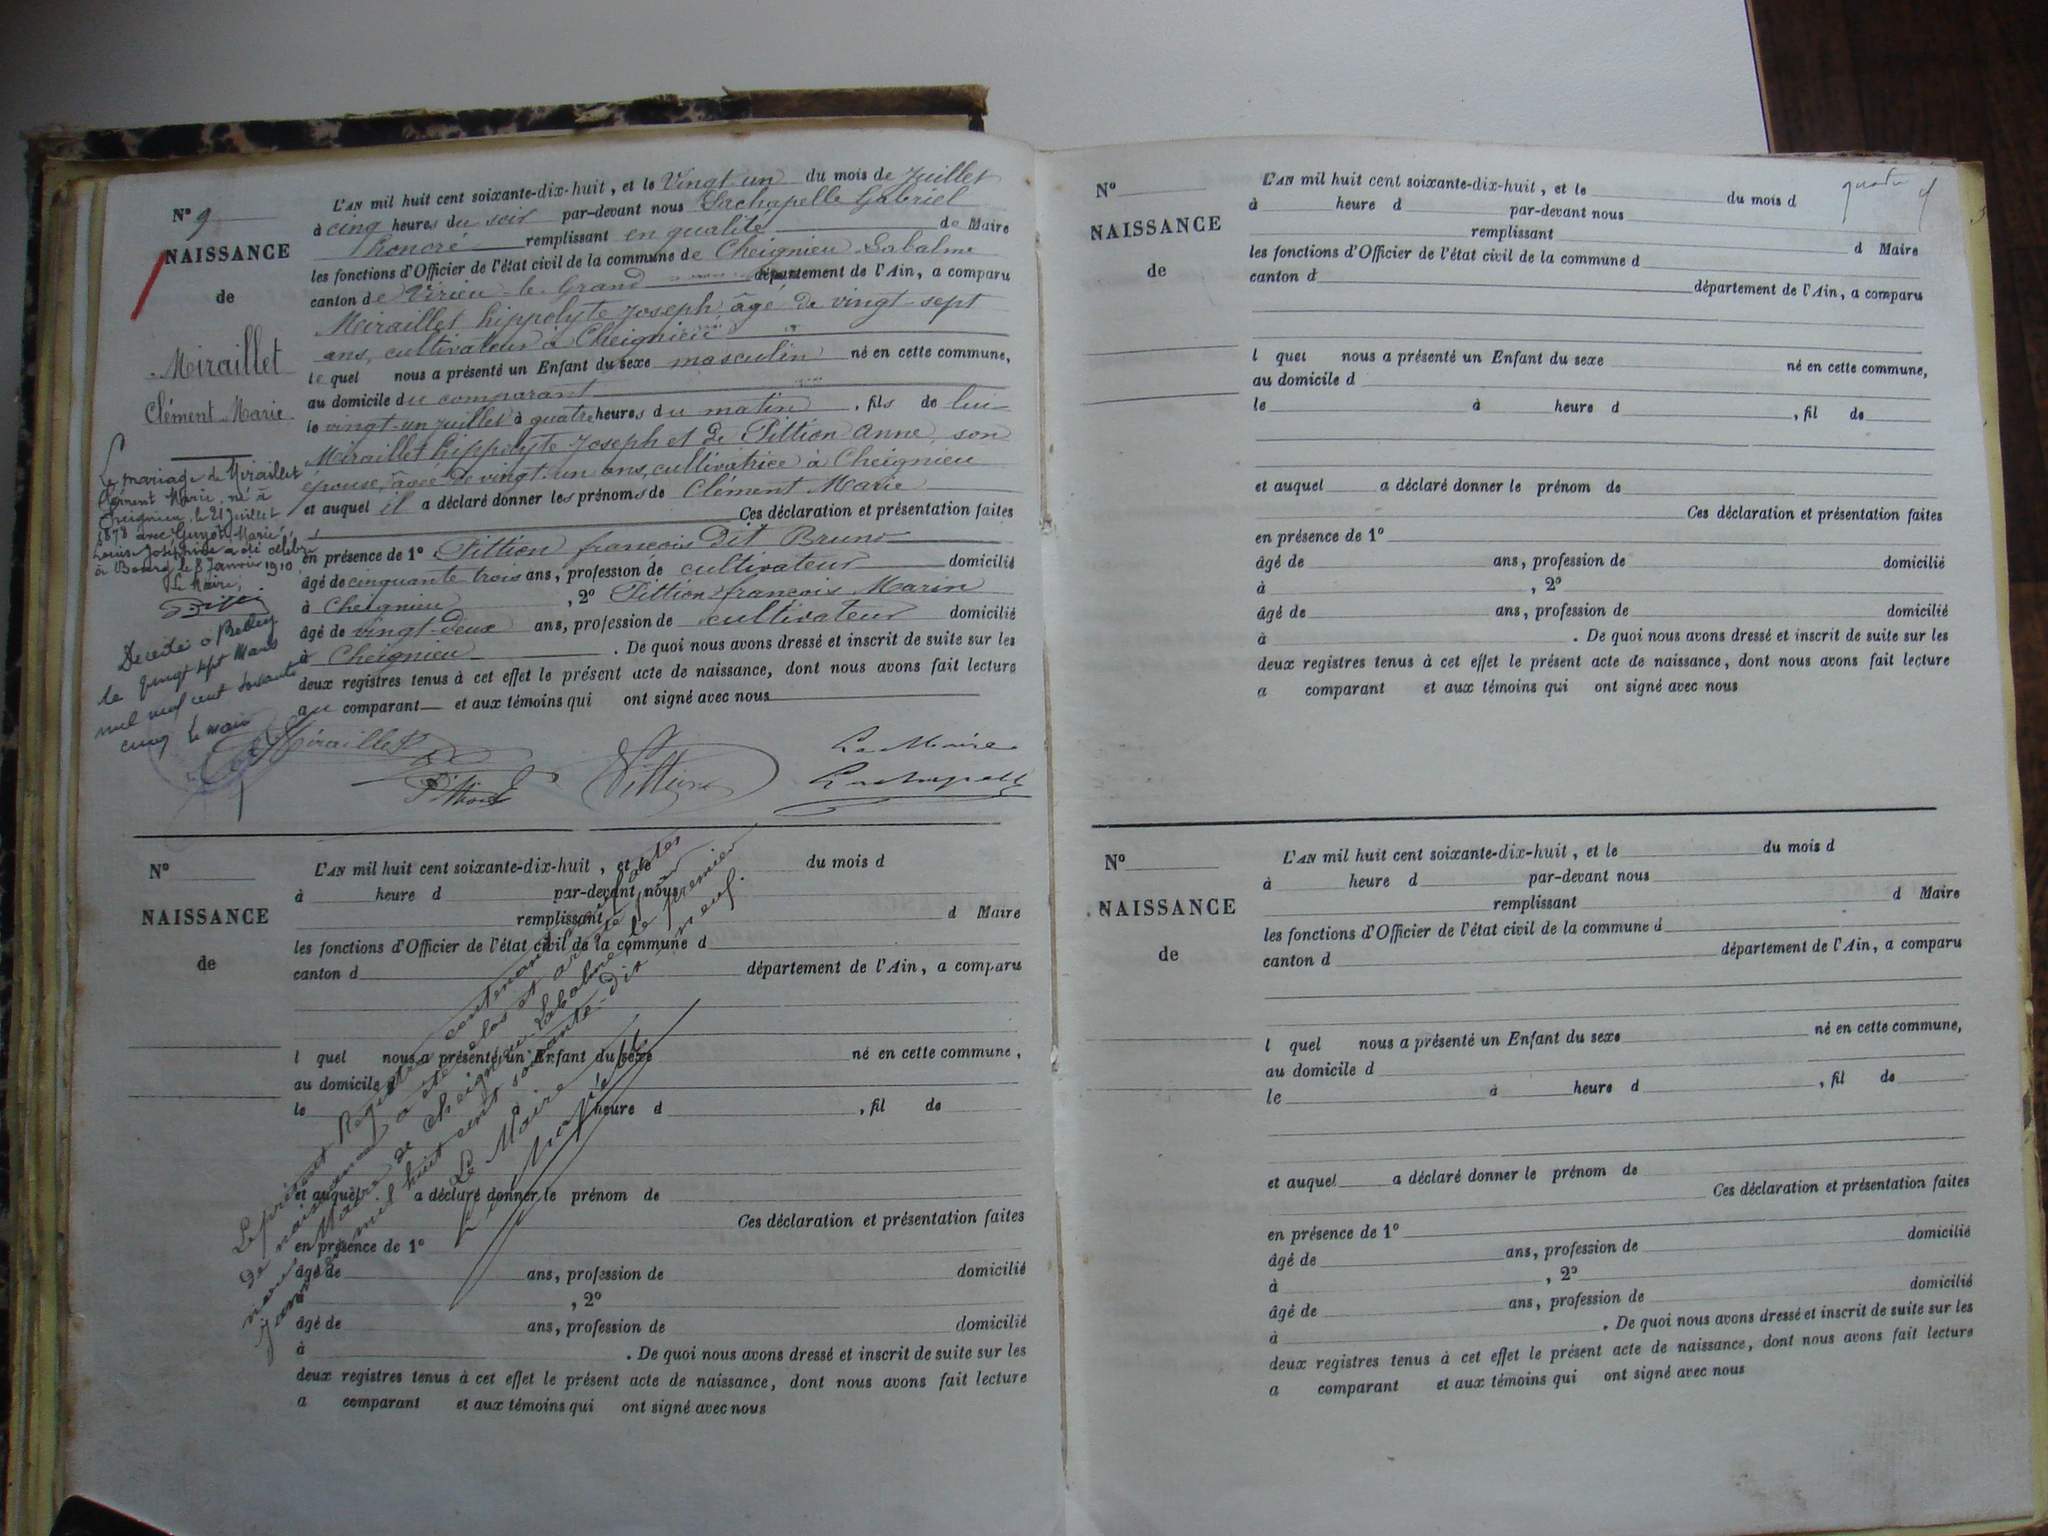 N° 9
NAISSANCE
de
Miraillet
Clément Marie
Le mariage de Miraillet
Clément Marie, né à
Cheignieu, le 21 Juillet
1878 avec Guyot Marie
Louise Joséphine a été célébré
à Bourg le 8 Janvier 1910
Le Maire,
Décédé à Belley
le vingt sept Mars
mil neuf cent soixante
cinq Le maire
L'AN mil huit cent soixante-dix-huit, et le Vingt-un du mois de Juillet
à cinq heures du soir par-devant nous Lachapelle Gabriel
honoré remplissant en qualité de Maire
les fonctions d'Officier de l'état civil de la commune de Cheignieu Labalme
canton de Virieu-le-Grand département de l'Ain, a comparu
Miraillet hippolyte Joseph, âgé de vingt-sept
ans, cultivateur à Cheignieu
lequel nous a présenté un Enfant du sexe masculin né en cette commune,
au domicile du comparant
le vingt-un juillet à quatre heures du matin, fils de lui
Miraillet hippolyte Joseph et de Pittion Anne, son
épouse, âgée de vingt-un ans, cultivatrice à Cheignieu
et auquel il a déclaré donner les prénoms de Clément Marie
Ces déclaration et présentation faites
en présence de 1° Pittion françois dit Bruno
âgé de cinquante trois ans, profession de cultivateur domicilié
à Cheignieu, 2° Pittion françois Marin
âgé de vingt-deux ans, profession de cultivateur domicilié
à Cheignieu. De quoi nous avons dressé et inscrit de suite sur les
deux registres tenus à cet effet le présent acte de naissance, dont nous avons fait lecture
au comparant et aux témoins qui ont signé avec nous
Miraillet
Pittion
Pittion
Le Maire
Lachapelle
N°
NAISSANCE
de
L'AN mil huit cent soixante-dix-huit, et le du mois d
à heure d par-devant nous
remplissant d Maire
les fonctions d'Officier de l'état civil de la commune d
canton d département de l'Ain, a comparu
l quel nous a présenté un Enfant du sexe né en cette commune,
au domicile d
le à heure d , fil de
et auquel a déclaré donner le prénom de
Ces déclaration et présentation faites
en présence de 1°
âgé de ans, profession de domicilié
, 2°
âgé de ans, profession de domicilié
à . De quoi nous avons dressé et inscrit de suite sur les
deux registres tenus à cet effet le présent acte de naissance, dont nous avons fait lecture
a comparant et aux témoins qui ont signé avec nous
Le présent Registre contenant neuf actes
de naissances a été clos et arrêté par
nous Maire de Cheignieu-Labalme, le premier
janvier mil huit cent soixante-dix-neuf.
Le Maire
Lachapelle
quatre 4
N°
NAISSANCE
de
L'AN mil huit cent soixante-dix-huit, et le du mois d
à heure d par-devant nous
remplissant d Maire
les fonctions d'Officier de l'état civil de la commune d
canton d département de l'Ain, a comparu
l quel nous a présenté un Enfant du sexe né en cette commune,
au domicile d
le à heure d , fil de
et auquel a déclaré donner le prénom de
Ces déclaration et présentation faites
en présence de 1°
âgé de ans, profession de domicilié
à , 2°
âgé de ans, profession de domicilié
à . De quoi nous avons dressé et inscrit de suite sur les
deux registres tenus à cet effet le présent acte de naissance, dont nous avons fait lecture
a comparant et aux témoins qui ont signé avec nous
N°
NAISSANCE
de
L'AN mil huit cent soixante-dix-huit, et le du mois d
à heure d par-devant nous
remplissant d Maire
les fonctions d'Officier de l'état civil de la commune d
canton d département de l'Ain, a comparu
l quel nous a présenté un Enfant du sexe né en cette commune,
au domicile d
le à heure d , fil de
et auquel a déclaré donner le prénom de
Ces déclaration et présentation faites
en présence de 1°
âgé de ans, profession de domicilié
à , 2°
âgé de ans, profession de domicilié
à . De quoi nous avons dressé et inscrit de suite sur les
deux registres tenus à cet effet le présent acte de naissance, dont nous avons fait lecture
a comparant et aux témoins qui ont signé avec nous